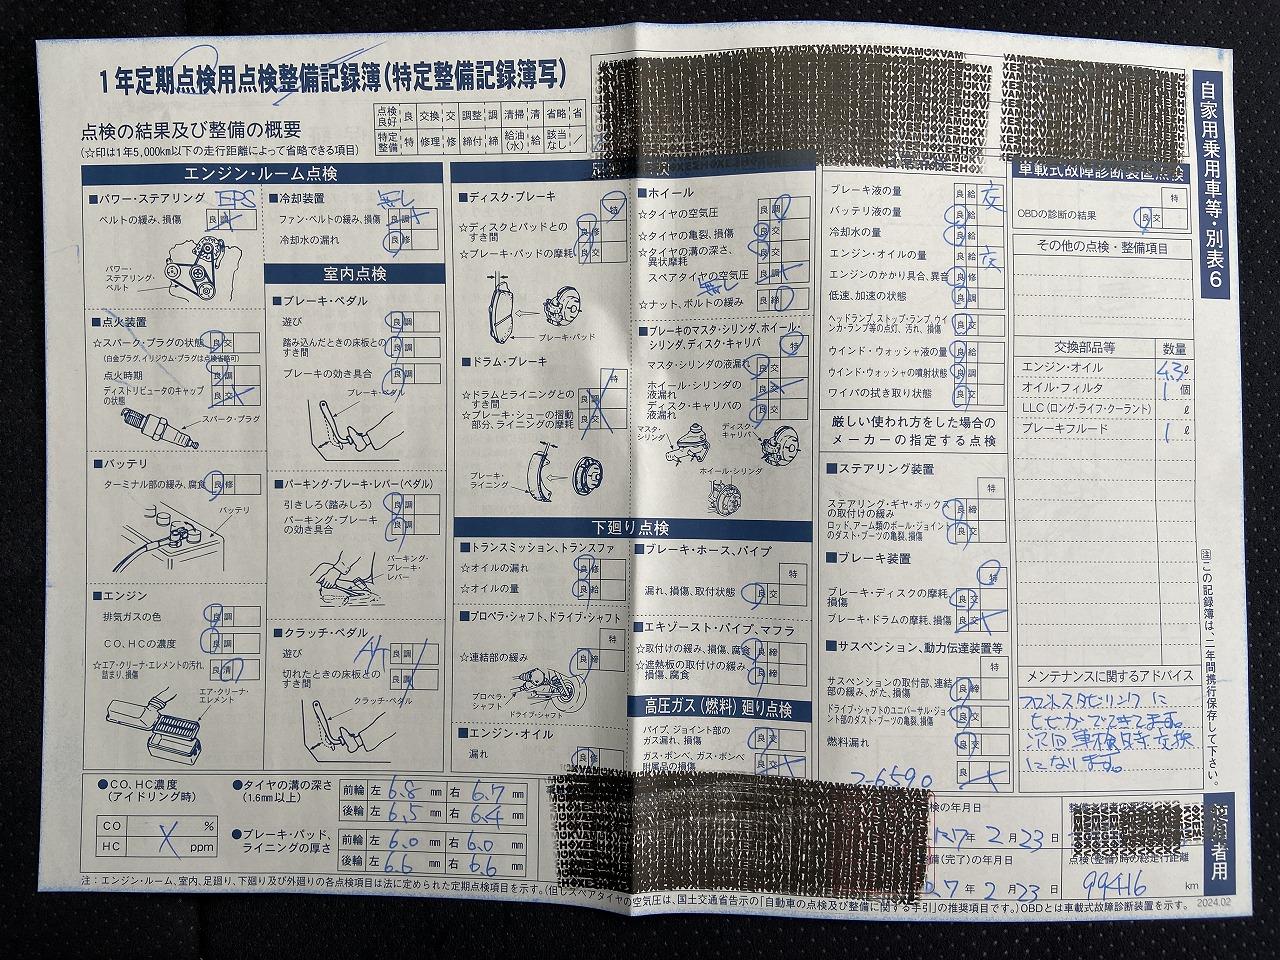 1年定期点検用点検整備記録簿(特定整備記録簿写)
点検の結果及び整備の概要
(☆印は1年5,000km以下の走行距離によって省略できる項目)
点検良好 良 交換 交 調整 調 清掃 清 省略 省
特定整備 特 修理 修 締付 締 給油(水) 給 該当なし /
自家用乗用車等・別表6
エンジン・ルーム点検
■パワー・ステアリング EPS
ベルトの緩み、損傷 良 調
パワー・ステアリング・ベルト
■点火装置
☆スパーク・プラグの状態 良 交
(白金プラグ、イリジウム・プラグは点検省略可)
点火時期 良 調
ディストリビュータのキャップの状態 良 交
スパーク・プラグ
■バッテリ
ターミナル部の緩み、腐食 良 修
バッテリ
■エンジン
排気ガスの色 良 調
CO、HCの濃度 良 調
☆エア・クリーナ・エレメントの汚れ、詰まり、損傷 良 清
エア・クリーナ・エレメント
■冷却装置 無し
ファン・ベルトの緩み、損傷 良 調
冷却水の漏れ 良 修
室内点検
■ブレーキ・ペダル
遊び 良 調
踏み込んだときの床板とのすき間 良 調
ブレーキの効き具合 良 調
ブレーキ・ペダル
■パーキング・ブレーキ・レバー(ペダル)
引きしろ(踏みしろ) 良 調
パーキング・ブレーキの効き具合 良 調
パーキング・ブレーキ・レバー
■クラッチ・ペダル
遊び 良 調
切れたときの床板とのすき間 良 調
クラッチ・ペダル
■ディスク・ブレーキ
特
☆ディスクとパッドとのすき間 良 修
☆ブレーキ・パッドの摩耗 良 交
ブレーキ・パッド
■ドラム・ブレーキ
特
☆ドラムとライニングとのすき間 良
☆ブレーキ・シューの摺動部分、ライニングの摩耗 良 交
ブレーキ・ライニング
■ホイール
☆タイヤの空気圧 良 調
☆タイヤの亀裂、損傷 良 交
☆タイヤの溝の深さ、異状摩耗 良 交
スペアタイヤの空気圧 良 調
無し
☆ナット、ボルトの緩み 良 締
■ブレーキのマスタ・シリンダ、ホイール・シリンダ、ディスク・キャリパ 特
マスタ・シリンダの液漏れ 良 交
ホイール・シリンダの液漏れ 良 交
ディスク・キャリパの液漏れ 良 交
マスタ・シリンダ
ディスク・キャリパ
ホイール・シリンダ
下廻り点検
■トランスミッション、トランスファ
☆オイルの漏れ 良 修
☆オイルの量 良 給
■プロペラ・シャフト、ドライブ・シャフト
特
☆連結部の緩み 良 締
プロペラ・シャフト
ドライブ・シャフト
■エンジン・オイル
漏れ 良 修
■ブレーキ・ホース、パイプ
特
漏れ、損傷、取付状態 良 交
■エキゾースト・パイプ、マフラ
☆取付けの緩み、損傷、腐食 良 締
☆遮熱板の取付けの緩み、損傷、腐食 良 締
高圧ガス(燃料)廻り点検
パイプ、ジョイント部のガス漏れ、損傷 良 交
ガス・ボンベ、ガス・ボンベ附属品の損傷 良 交
ブレーキ液の量 良 給 交
バッテリ液の量 良 給
冷却水の量 良 給
エンジン・オイルの量 良 給 交
エンジンのかかり具合、異音 良 修
低速、加速の状態 良 調
ヘッドランプ、ストップ・ランプ、ウインカ・ランプ等の点灯、汚れ、損傷 良 交
ウインド・ウォッシャ液の量 良 給
ウインド・ウォッシャの噴射状態 良 調
ワイパの拭き取り状態 良 交
厳しい使われ方をした場合のメーカーの指定する点検
■ステアリング装置
特
ステアリング・ギヤ・ボックスの取付けの緩み 良 締
ロッド、アーム類のボール・ジョイントのダスト・ブーツの亀裂、損傷 良 交
■ブレーキ装置
特
ブレーキ・ディスクの摩耗、損傷 良 交
ブレーキ・ドラムの摩耗、損傷 良 交
■サスペンション、動力伝達装置等
特
サスペンションの取付部、連結部の緩み、がた、損傷 良 締
ドライブ・シャフトのユニバーサル・ジョイント部のダスト・ブーツの亀裂、損傷 良 交
燃料漏れ 良 交
2-6590 良
車載式故障診断装置点検
特
OBDの診断の結果 良 交
その他の点検・整備項目
交換部品等 数量
エンジン・オイル 4.3 ℓ
オイル・フィルタ 1 個
LLC(ロング・ライフ・クーラント) ℓ
ブレーキフルード 1 ℓ
メンテナンスに関するアドバイス
フロントスタビリンクに
ヒビがでてきてます。
次回車検時交換
になります。
注 この記録簿は、二年間携行保存して下さい。
●CO、HC濃度(アイドリング時)
CO %
HC ppm
●タイヤの溝の深さ(1.6mm以上)
前輪 左 6.8 mm 右 6.7 mm
後輪 左 6.5 mm 右 6.4 mm
●ブレーキ・パッド、ライニングの厚さ
前輪 左 6.0 mm 右 6.0 mm
後輪 左 6.6 mm 右 6.6 mm
検の年月日
R7年 2月 23日
備(完了)の年月日
7年 2月 23日
点検(整備)時の総走行距離
99416 km
者用
注:エンジン・ルーム、室内、足廻り、下廻り及び外廻りの各点検項目は法に定められた定期点検項目を示す。(但しスペアタイヤの空気圧は、国土交通省告示の「自動車の点検及び整備に関する手引」の推奨項目です。)OBDとは車載式故障診断装置を示す。 2024.02